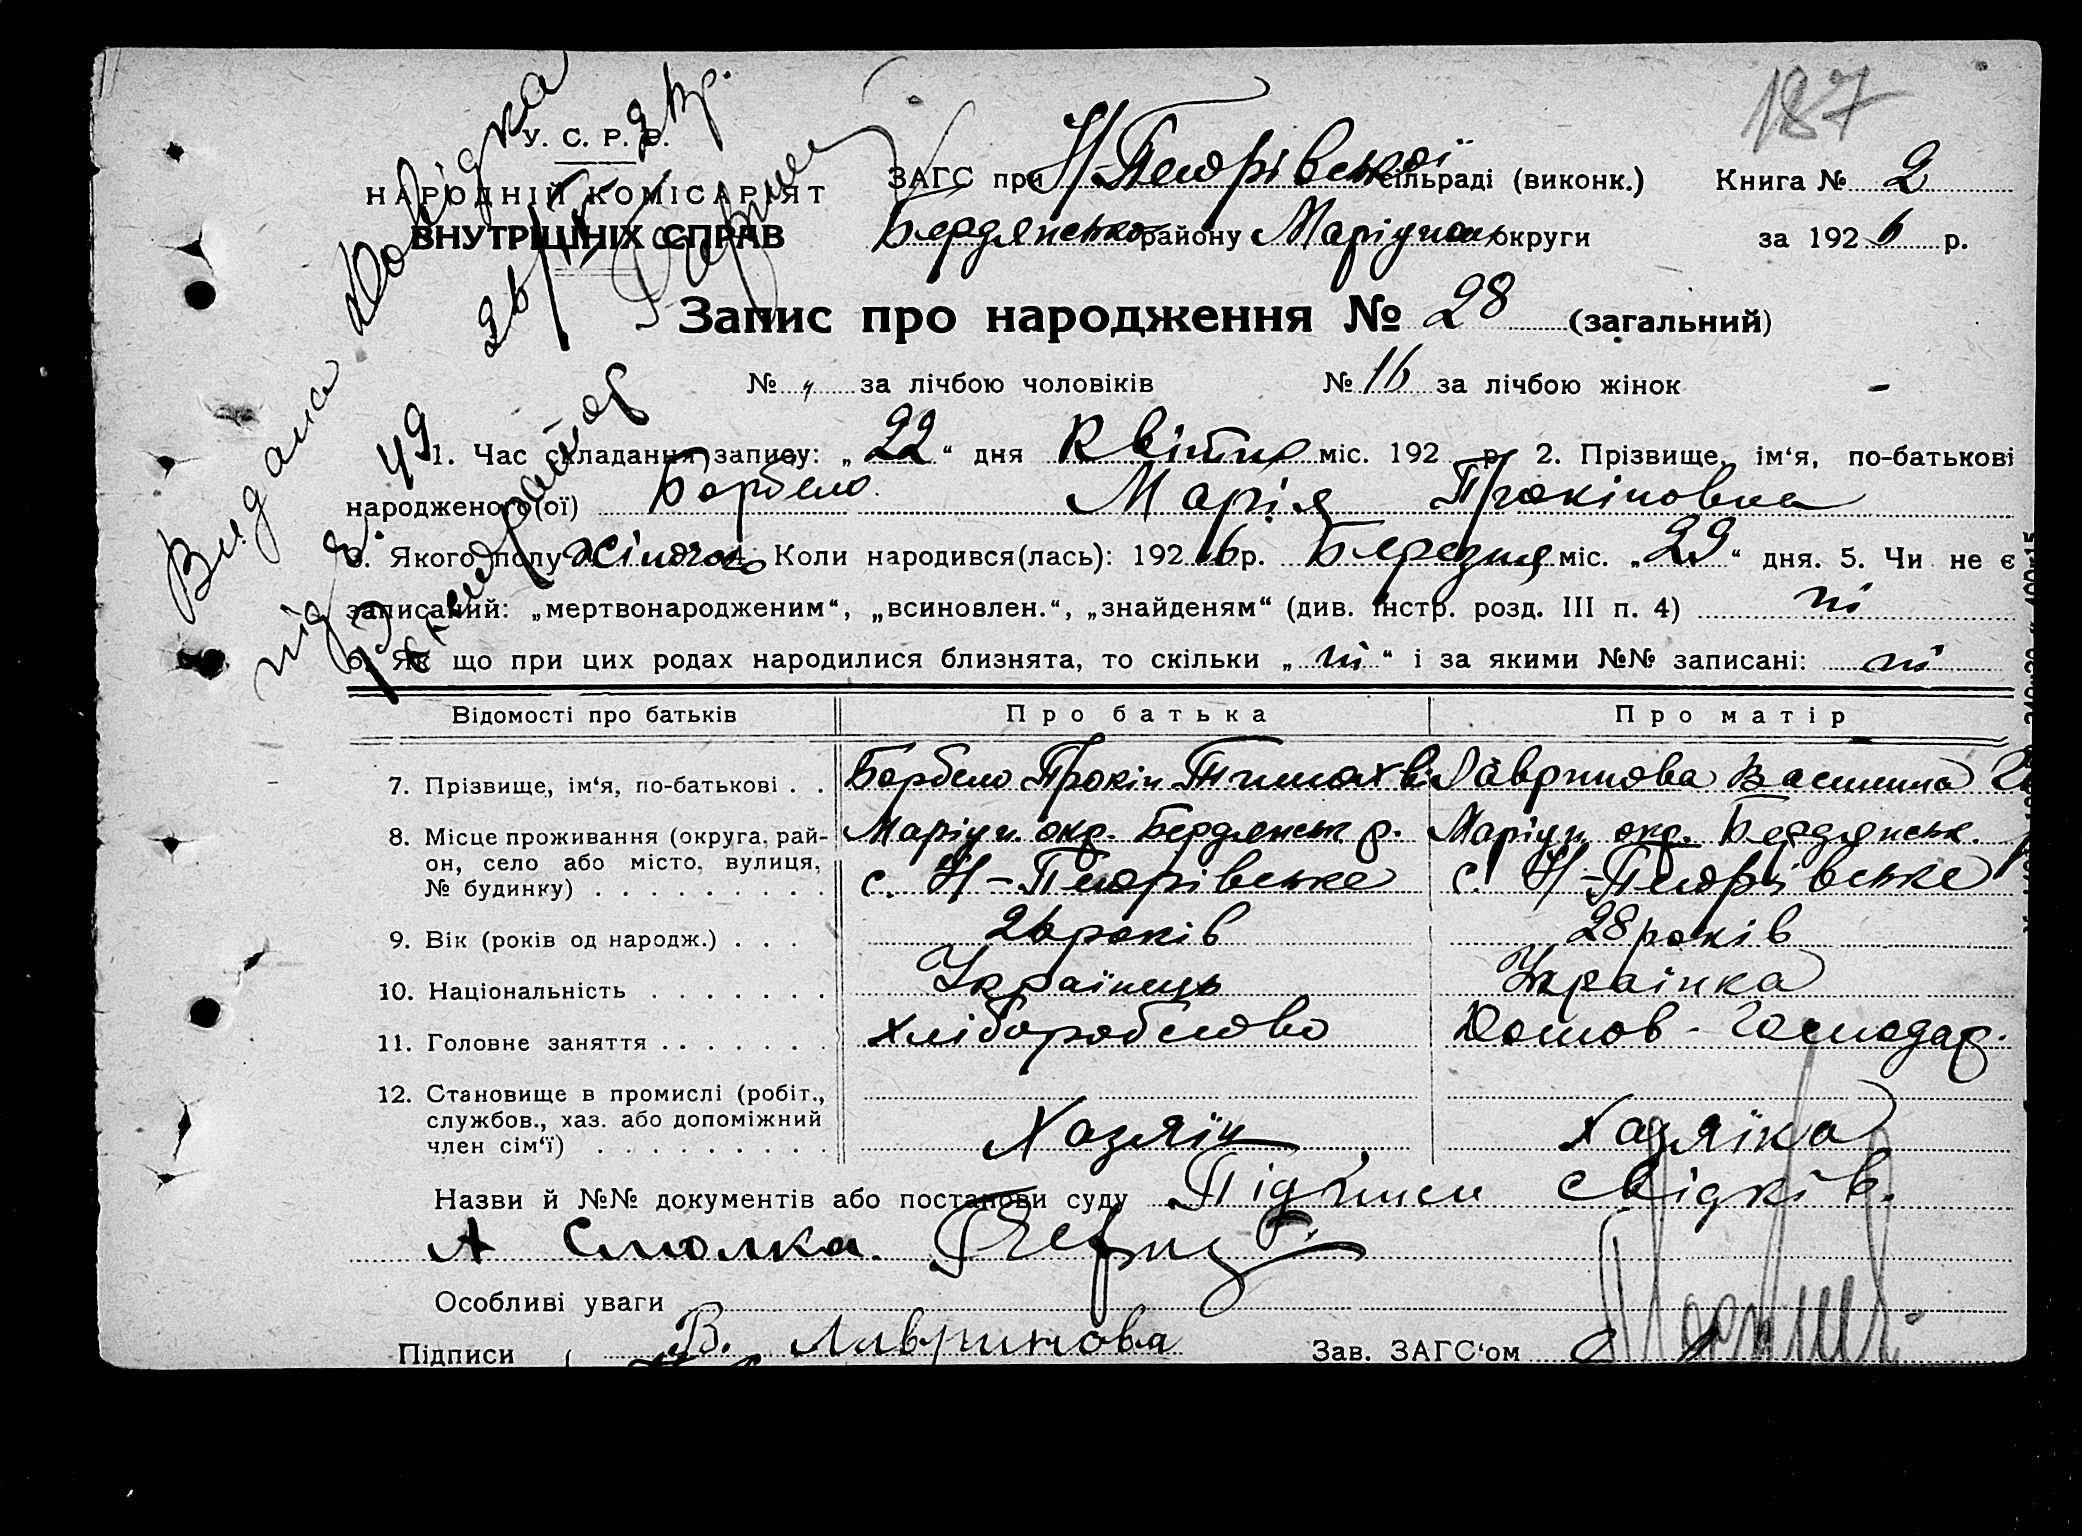 187
У. С. Р. Р.
НАРОДНІЙ КОМІСАРІЯТ
ВНУТРІШНІХ СПРАВ
ЗАГС при Н-Петрівської сільраді (виконк.) Книга № 2
Бердянсько району Маріупол округи за 1926 р.
Видана Довідка
під
49
Запис про народження № 28 (загальний)
№ „ за лічбою чоловіків № 16 за лічбою жінок
1. Час складання запису: „22“ дня Квітня міс. 192 р. 2. Прізвище, ім‘я, по-батькові
народженого(ої) Борбело Марія Прокіповна
3. Якого полу жіночого 4. Коли народився(лась): 1926 р. Березня міс. „29“ дня. 5. Чи не є
записаний: „мертвонародженим“, „всиновлен.“, „знайденям“ (див. Інстр. розд. III п. 4) ні
6. Як що при цих родах народилися близнята, то скільки „ні“ і за якими №№ записані: ні
Відомості про батьків Про батька Про матір
7. Прізвище, ім‘я, по-батькові . . Борбело Прокіп Тимохв. Лавринова Василина
8. Місце проживання (округа, рай-
он, село або місто, вулиця,
№ будинку) . . . . . . . . .
Маріуп. окр. Бердянськ р. Маріуп. окр. Бердянськ.
с. Н-Петрівське с. Н-Петрівське
9. Вік (років од народж.) . . . 26 років 28 років
10. Національність . . . . . . . Українець Українка
11. Головне заняття . . . . . . . хліборобство Домов-господар.
12. Становище в промислі (робіт.,
службов., хаз. або допоміжний
член сім‘ї) . . . . . . . . .
Хазяїн Хазяїка
Назви й №№ документів або постанови суду Підписи свідків.
А Смолка
Особливі уваги
Підписи В. Лавринова Зав. ЗАГС‘ом